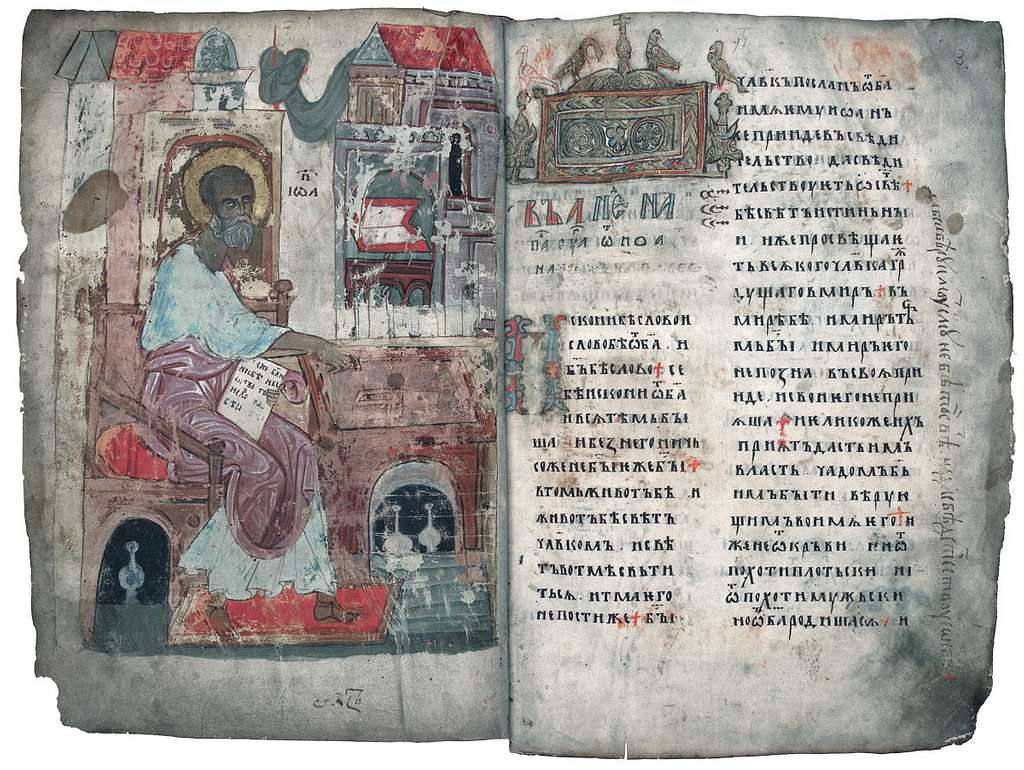 І҃ѡа
въ д҃ не на
па ст҃а ѿ ио҃а
скони бѣ слово и
слово бѣ ѿ ба . и
бъ бѣ слово + се
бѣ искони ѿ ба
и всѣ тѣмь бы
ша и без него ничь
соже не бы иже бы +
в томь животъ бѣ и
животъ бѣ свѣтъ
члвком . и свѣ
тъ во тмѣ свьти
ться . и тма ѥго
не постиже + бы
члвкъ посланъ ѿ ба
имѧ ѥмꙋ иѡанъ
се прииде въ свѣди
тельство да свѣди
тельствꙋѥть ѿ свѣ +
бѣ свѣтъ истиньны
и . иже просвѣщаѥ
ть всѧкого члвка грѧ
дꙋща го в миръ + въ
мирѣ бѣ . и миръ тѣ
мь бы и миръ ѥго
не позна въ своꙗ при
иде . и свои ѥго не при
ѧша + и елико же ихъ
приѧтъ дасть имъ
власть чадомъ бь
имъ быти вѣрꙋю
щимъ во имѧ ѥго и
же не ѿ крьви ни ѿ
похоти плотьски . ни
ѿ похоти мꙋжьски
но ѿ ба родишасѧ . и